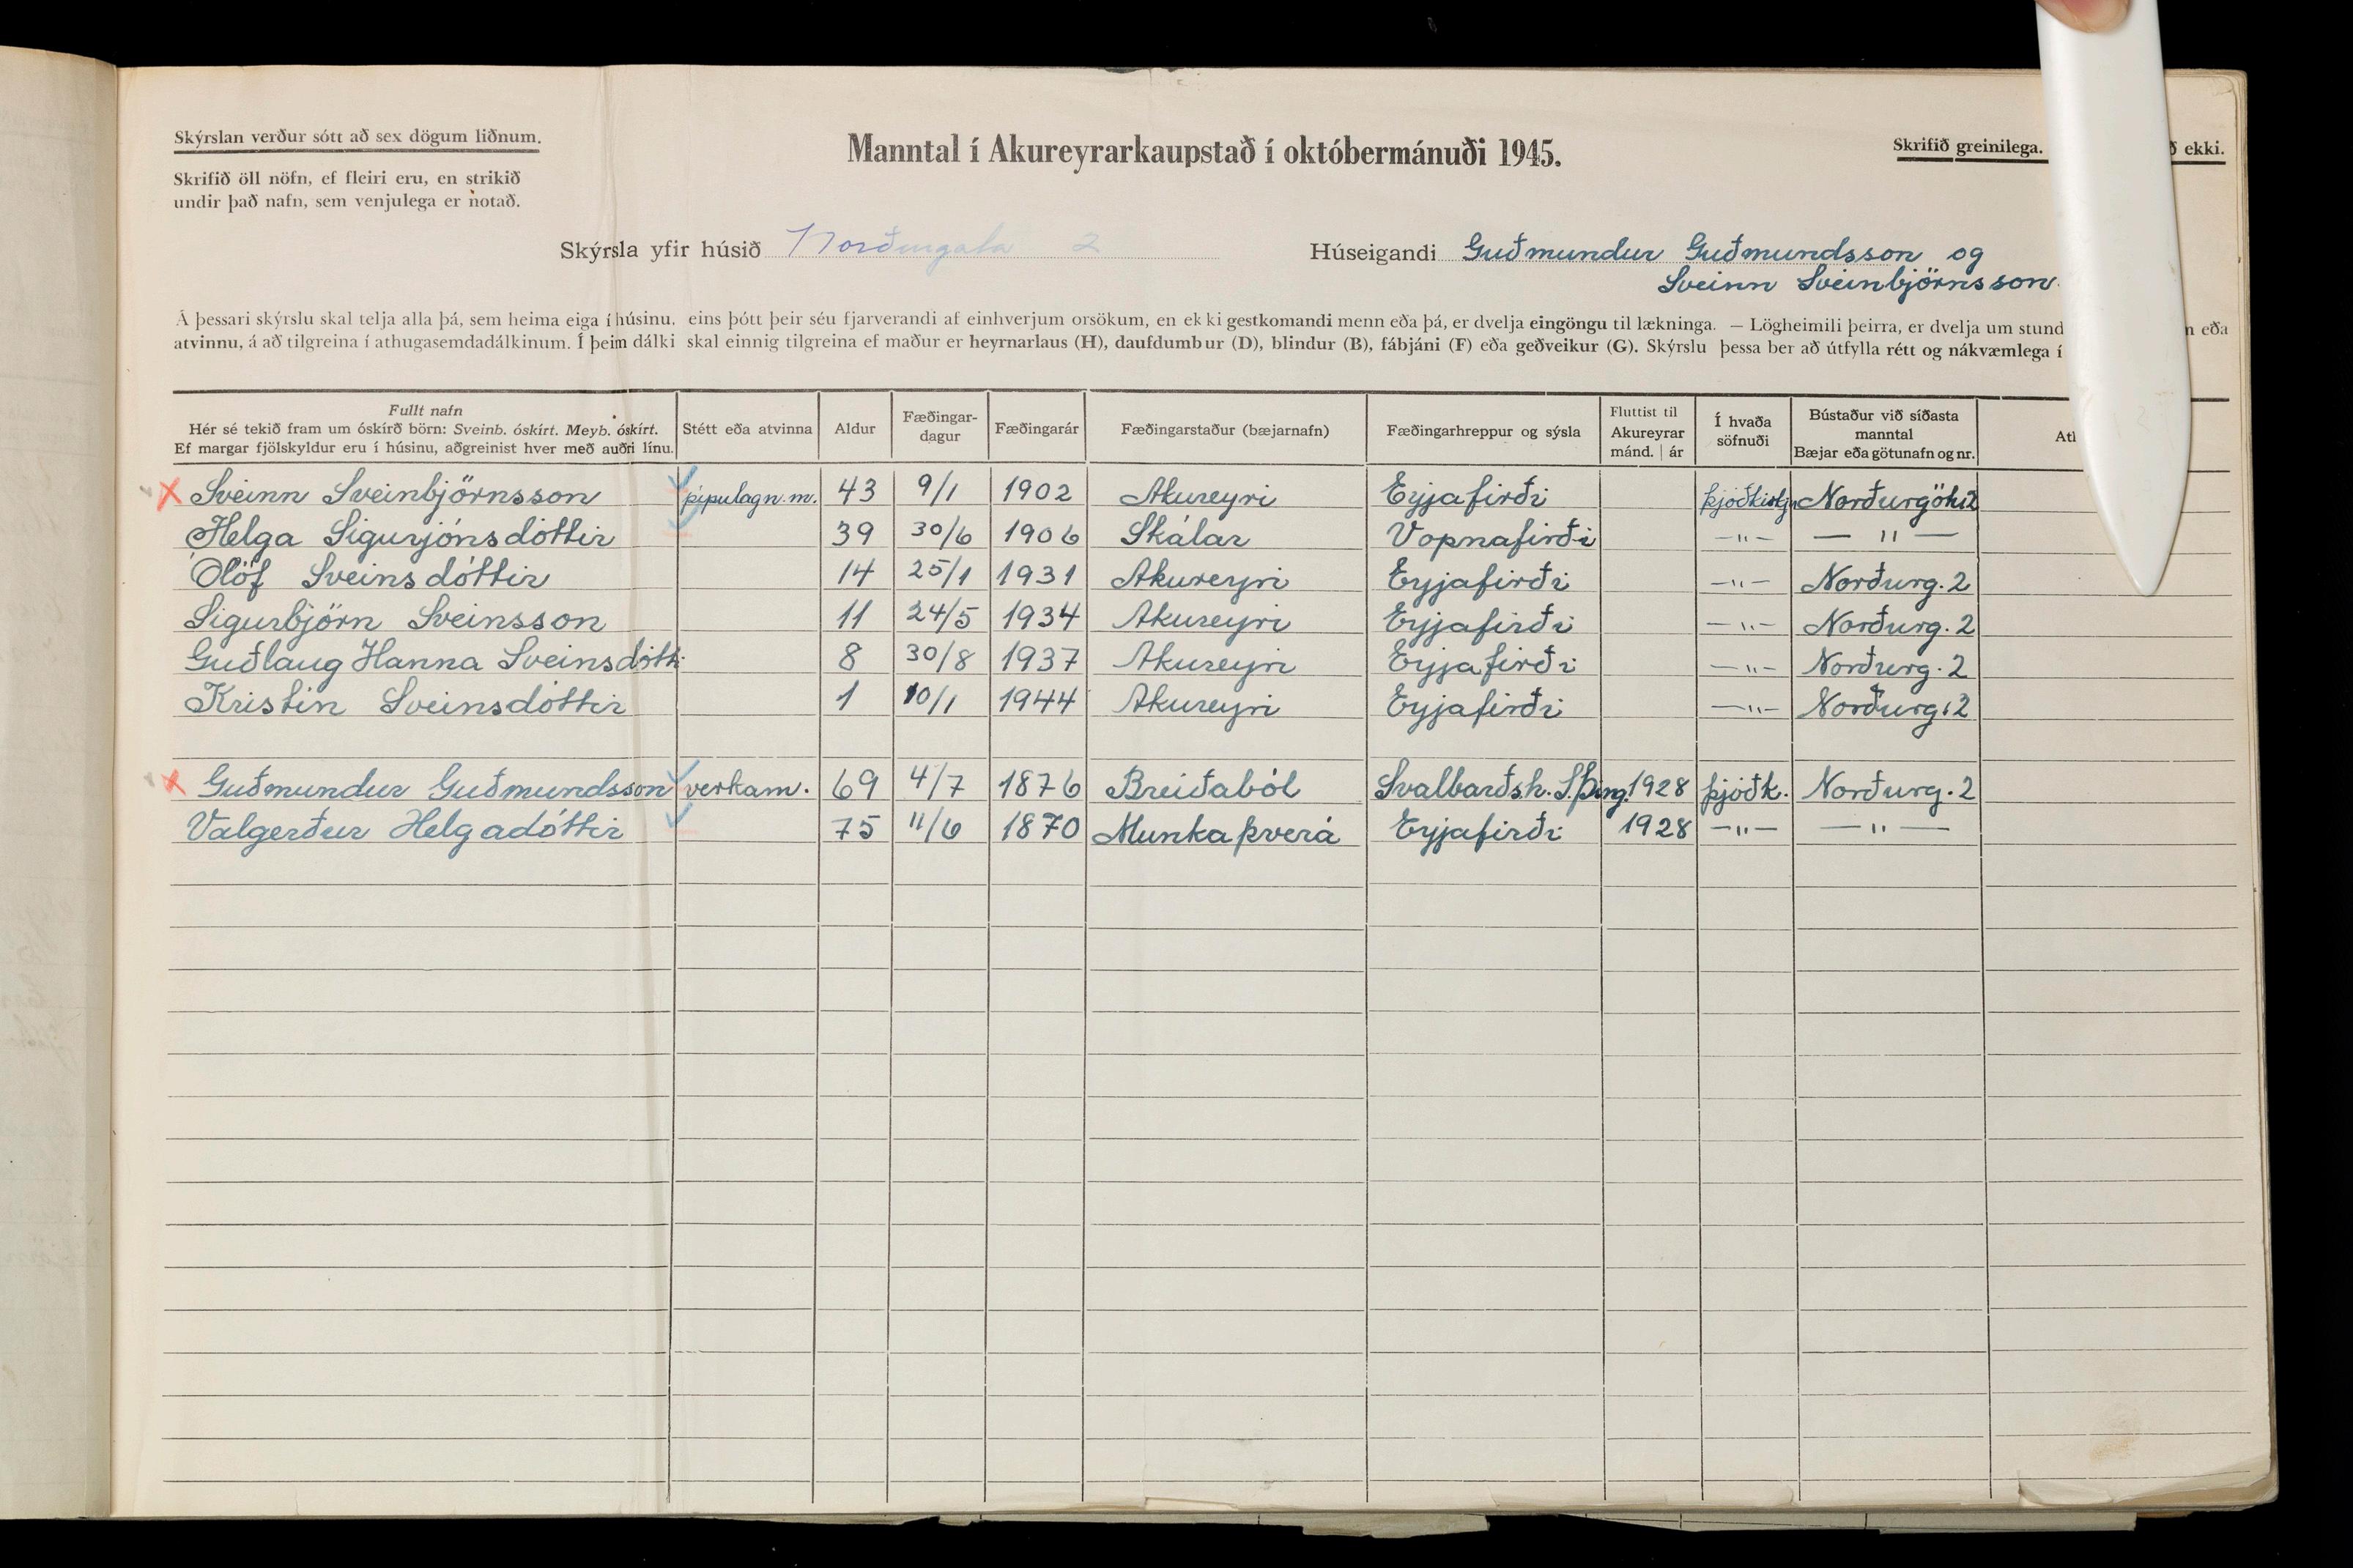 Skýrslan verður sótt að sex dögum liðnum.
Skrifið öll nöfn, ef fleiri eru, en strikið
undir það nafn, sem venjulega er notað.
Manntal í Akureyrarkaupstað í októbermánuði 1945.
Skrifið greinilega. ekki.
Skýrsla yfir húsið Norðurgata 2
Húseigandi Guðmundur Guðmundsson og
Sveinn Sveinbjörnsson.
Á þessari skýrslu skal telja alla þá, sem heima eiga í húsinu, eins þótt þeir séu fjarverandi af einhverjum orsökum, en ekki gestkomandi menn eða þá, er dvelja eingöngu til lækninga. — Lögheimili þeirra, er dvelja um stund eða
atvinnu, á að tilgreina í athugasemdadálkinum. Í þeim dálki skal einnig tilgreina ef maður er heyrnarlaus (H), daufdumbur (D), blindur (B), fábjáni (F) eða geðveikur (G). Skýrslu þessa ber að útfylla rétt og nákvæmlega í
Fullt nafn
Hér sé tekið fram um óskírð börn: Sveinb. óskírt. Meyb. óskírt.
Ef margar fjölskyldur eru í húsinu, aðgreinist hver með auðri línu.
Stétt eða atvinna
Aldur
Fæðingar-
dagur
Fæðingarár
Fæðingarstaður (bæjarnafn)
Fæðingarhreppur og sýsla
Fluttist til
Akureyrar
mánd. | ár
Í hvaða
söfnuði
Bústaður við síðasta
manntal
Bæjar eða götunafn og nr.
Sveinn Sveinbjörnsson pípulagn.m. 43 9/1 1902 Akureyri Eyjafirði Norðurgötu 2
Helga Sigurjónsdóttir 39 30/6 1906 Skálar Vopnafirði —"— — " —
Ólöf Sveinsdóttir 14 25/1 1931 Akureyri Eyjafirði —"— Norðurg. 2
Sigurbjörn Sveinsson 11 24/5 1934 Akureyri Eyjafirði —"— Norðurg. 2
Guðlaug Hanna Sveinsdótt. 8 30/8 1937 Akureyri Eyjafirði —"— Norðurg. 2
Kristín Sveinsdóttir 1 10/1 1944 Akureyri Eyjafirði —"— Norðurg. 2
Guðmundur Guðmundsson verkam. 69 4/7 1876 Breiðaból Svalbarðsh. S.Þing. 1928 þjóðk. Norðurg. 2
Valgerður Helgadóttir 75 11/6 1870 Munkaþverá Eyjafirði 1928 —"— —"—